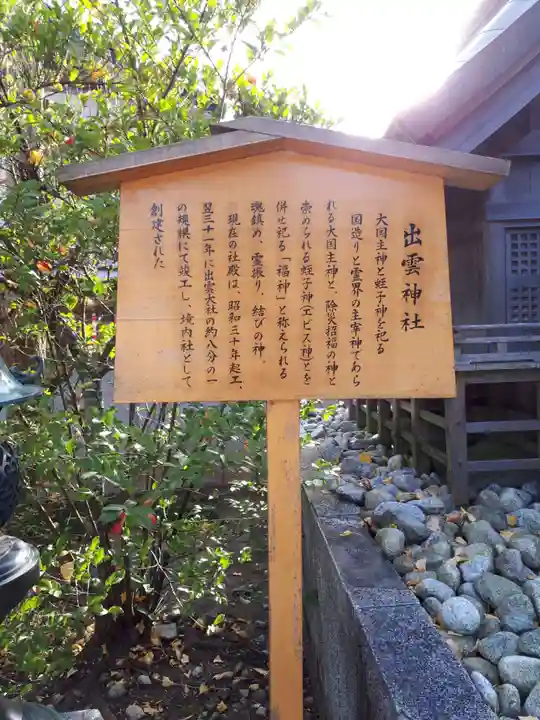 出雲神社
大国主神と蛭子神を祀る
国造りと霊界の主宰神であら
れる大国主神と、除災招福の神と
崇められる蛭子神(エビス神)とを
併せ祀る「福神」と称えられる
魂鎮め、霊振り、結びの神。
現在の社殿は、昭和三十年起工、
翌三十一年に出雲大社の約八分の一
の規模にて竣工し、境内社として、
創建された